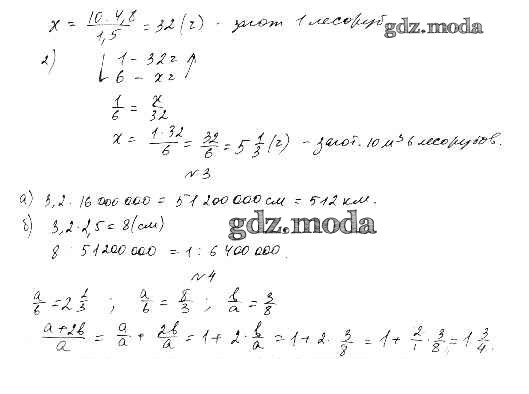 x = 10·4,8/1,5 = 32 (г) - загот 1 лесоруб
gdz.moda
2) ↓ 1 - 32г ↑
6 - xг
1/6 = x/32
x = 1·32/6 = 32/6 = 5 1/3 (г) - загот. 10 м³ 6 лесорубов.
№3
а) 3,2 · 16 000 000 = 51 200 000 см = 512 км.
б) 3,2 · 2,5 = 8 (см)
gdz.moda
8 : 51200 000 = 1 : 6 400 000.
№4
a/b = 2 2/3 ; a/b = 8/3 ; b/a = 3/8
a+2b/a = a/a + 2b/a = 1 + 2 · b/a = 1 + 2 · 3/8 = 1 + 2/1 · 3/8 = 1 3/4.